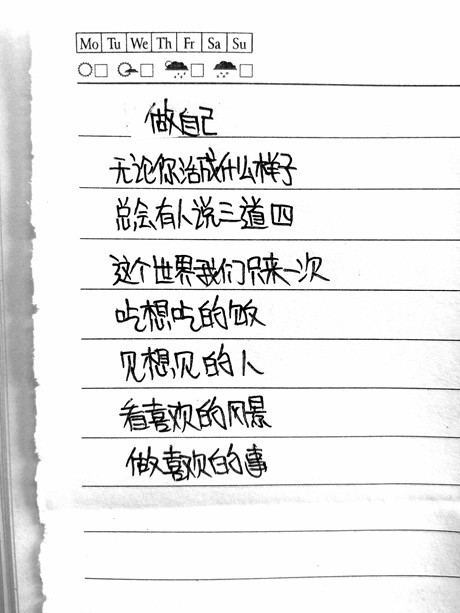 Mo Tu We Th Fr Sa Su
做自己
无论你活成什么样子
总会有人说三道四
这个世界我们只来一次
吃想吃的饭
见想见的人
看喜欢的风景
做喜欢的事